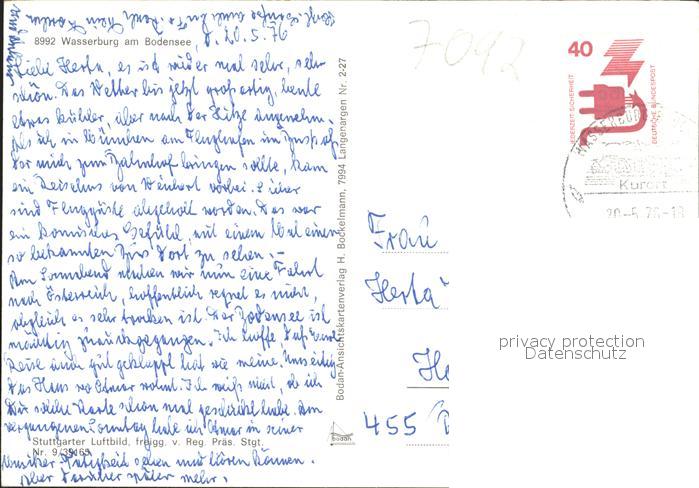 8992 Wasserburg am Bodensee
d. 20.5.76
Liebe Herta, es ist wieder mal sehr, sehr
schön. Das Wetter bis jetzt großartig, heute
etwas kühler, aber nach der Hitze angenehm.
Als ich in München am Flughafen im Bus saß
der mich zum Bahnhof bringen sollte, kam
ein Reisebus von Weinert vorbei. Es
sind Fluggäste abgeholt worden. Das war
ein komisches Gefühl, mit einem Mal einen
so bekannten Bus dort zu sehen. –
Am Sonnabend machen wir nun eine Fahrt
nach Österreich, hoffentlich regnet es nicht,
obgleich es sehr trocken ist. Der Bodensee ist
mächtig zurückgegangen. Ich hoffe, daß
Reise auch gut geklappt hat wie meine. Umseitig
das Haus wo Otmar wohnt. Ich weiß nicht, ob ich
Dir solche Karte schon mal geschickt habe. Am
vergangenen Sonntag habe ich Otmar in seiner
Stuttgarter Luftbild, freigg. v. Reg. Präs. Stgt.
Nr. 9/39165
Tätigkeit sehen und hören können.
Aber darüber später mehr.
Bodan-Ansichtskartenverlag H. Bockelmann, 7994 Langenargen Nr. 2-27
bodan
7042
40
JEDERZEIT SICHERHEIT
DEUTSCHE BUNDESPOST
WASSERBURG
Kurort
20.-5.76-18
Frau
Herta
455
privacy protection
Datenschutz